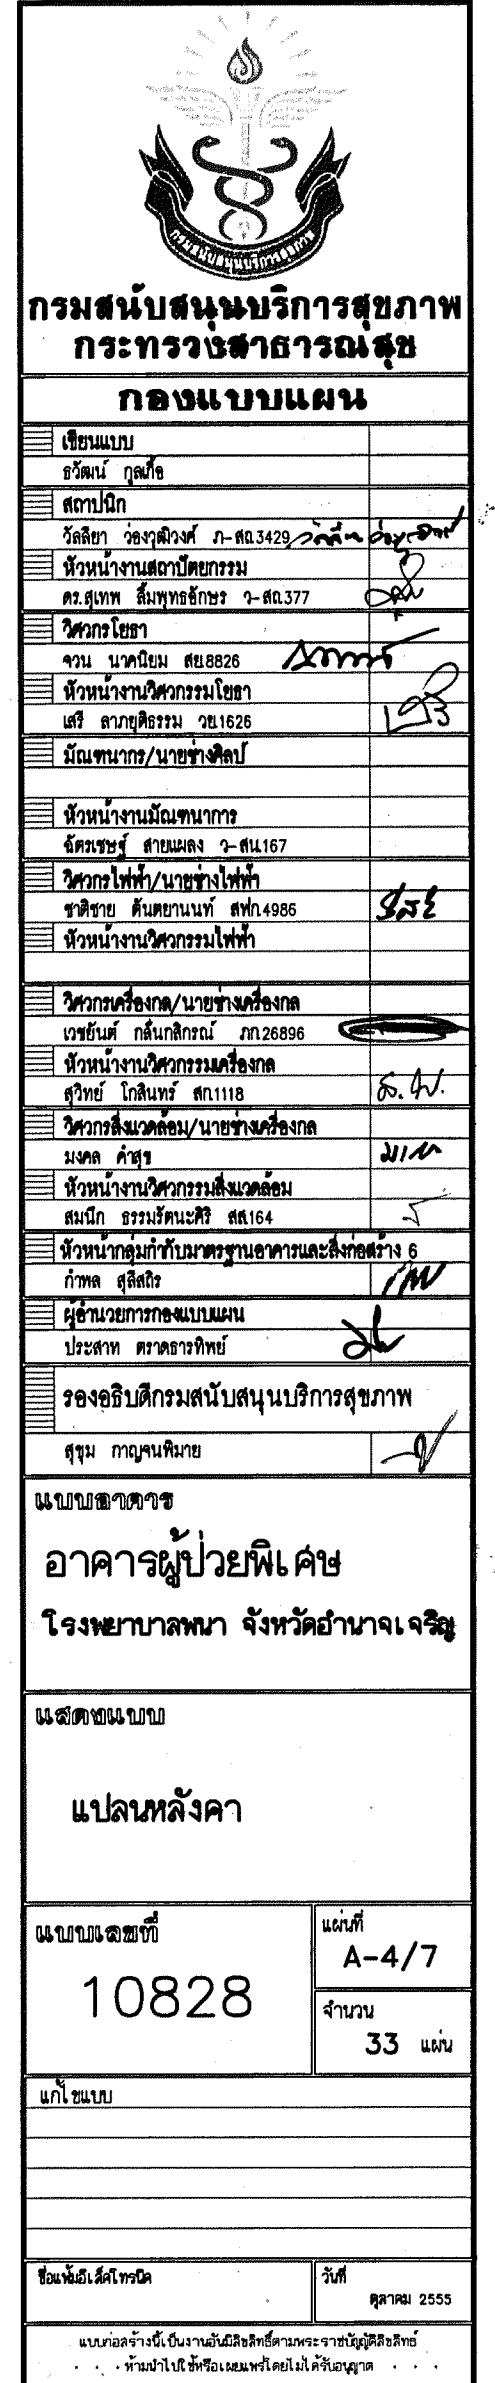 กรมสนับสนุนบริการสุขภาพ
กรมสนับสนุนบริการสุขภาพ
กระทรวงสาธารณสุข
กองแบบแผน
เขียนแบบ
ธวัฒน์ กูลเกื้อ
สถาปนิก
วัลลิยา ว่องวุฒิวงศ์ ภ-สถ.3429
หัวหน้างานสถาปัตยกรรม
ดร.สุเทพ ลิ้มพุทธอักษร ว-สถ.377
วิศวกรโยธา
จวน นาคนิยม สย.8826
หัวหน้างานวิศวกรรมโยธา
เสรี ลาภยุติธรรม วย.1626
มัณฑนากร/นายช่างศิลป์
หัวหน้างานมัณฑนาการ
ฉัตรเชษฐ์ สายแผลง ว-สน.167
วิศวกรไฟฟ้า/นายช่างไฟฟ้า
ชาติชาย ตันตยานนท์ สฟก.4986
หัวหน้างานวิศวกรรมไฟฟ้า
วิศวกรเครื่องกล/นายช่างเครื่องกล
เวชยันต์ กลั่นกลิกรณ์ ภก.26896
หัวหน้างานวิศวกรรมเครื่องกล
สุวิทย์ โกสินทร์ สก.1118
วิศวกรสิ่งแวดล้อม/นายช่างเครื่องกล
มงคล คำสุข
หัวหน้างานวิศวกรรมสิ่งแวดล้อม
สมนึก ธรรมรัตนะศิริ สส.164
หัวหน้ากลุ่มกำกับมาตรฐานอาคารและสิ่งก่อสร้าง 6
กำพล สุลีสถิร
ผู้อำนวยการกองแบบแผน
ประสาท ตราดธารทิพย์
รองอธิบดีกรมสนับสนุนบริการสุขภาพ
สุขุม กาญจนพิมาย
แบบอาคาร
อาคารผู้ป่วยพิเศษ
โรงพยาบาลพนา จังหวัดอำนาจเจริญ
แสดงแบบ
แปลนหลังคา
แบบเลขที่
10828
แผ่นที่
A-4/7
จำนวน
33 แผ่น
แก้ไขแบบ
ชื่อแฟ้มอิเล็คโทรนิค
วันที่
ตุลาคม 2555
แบบก่อสร้างนี้เป็นงานอันมีลิขสิทธิ์ตามพระราชบัญญัติลิขสิทธิ์
ห้ามนำไปใช้หรือเผยแพร่โดยไม่ได้รับอนุญาต